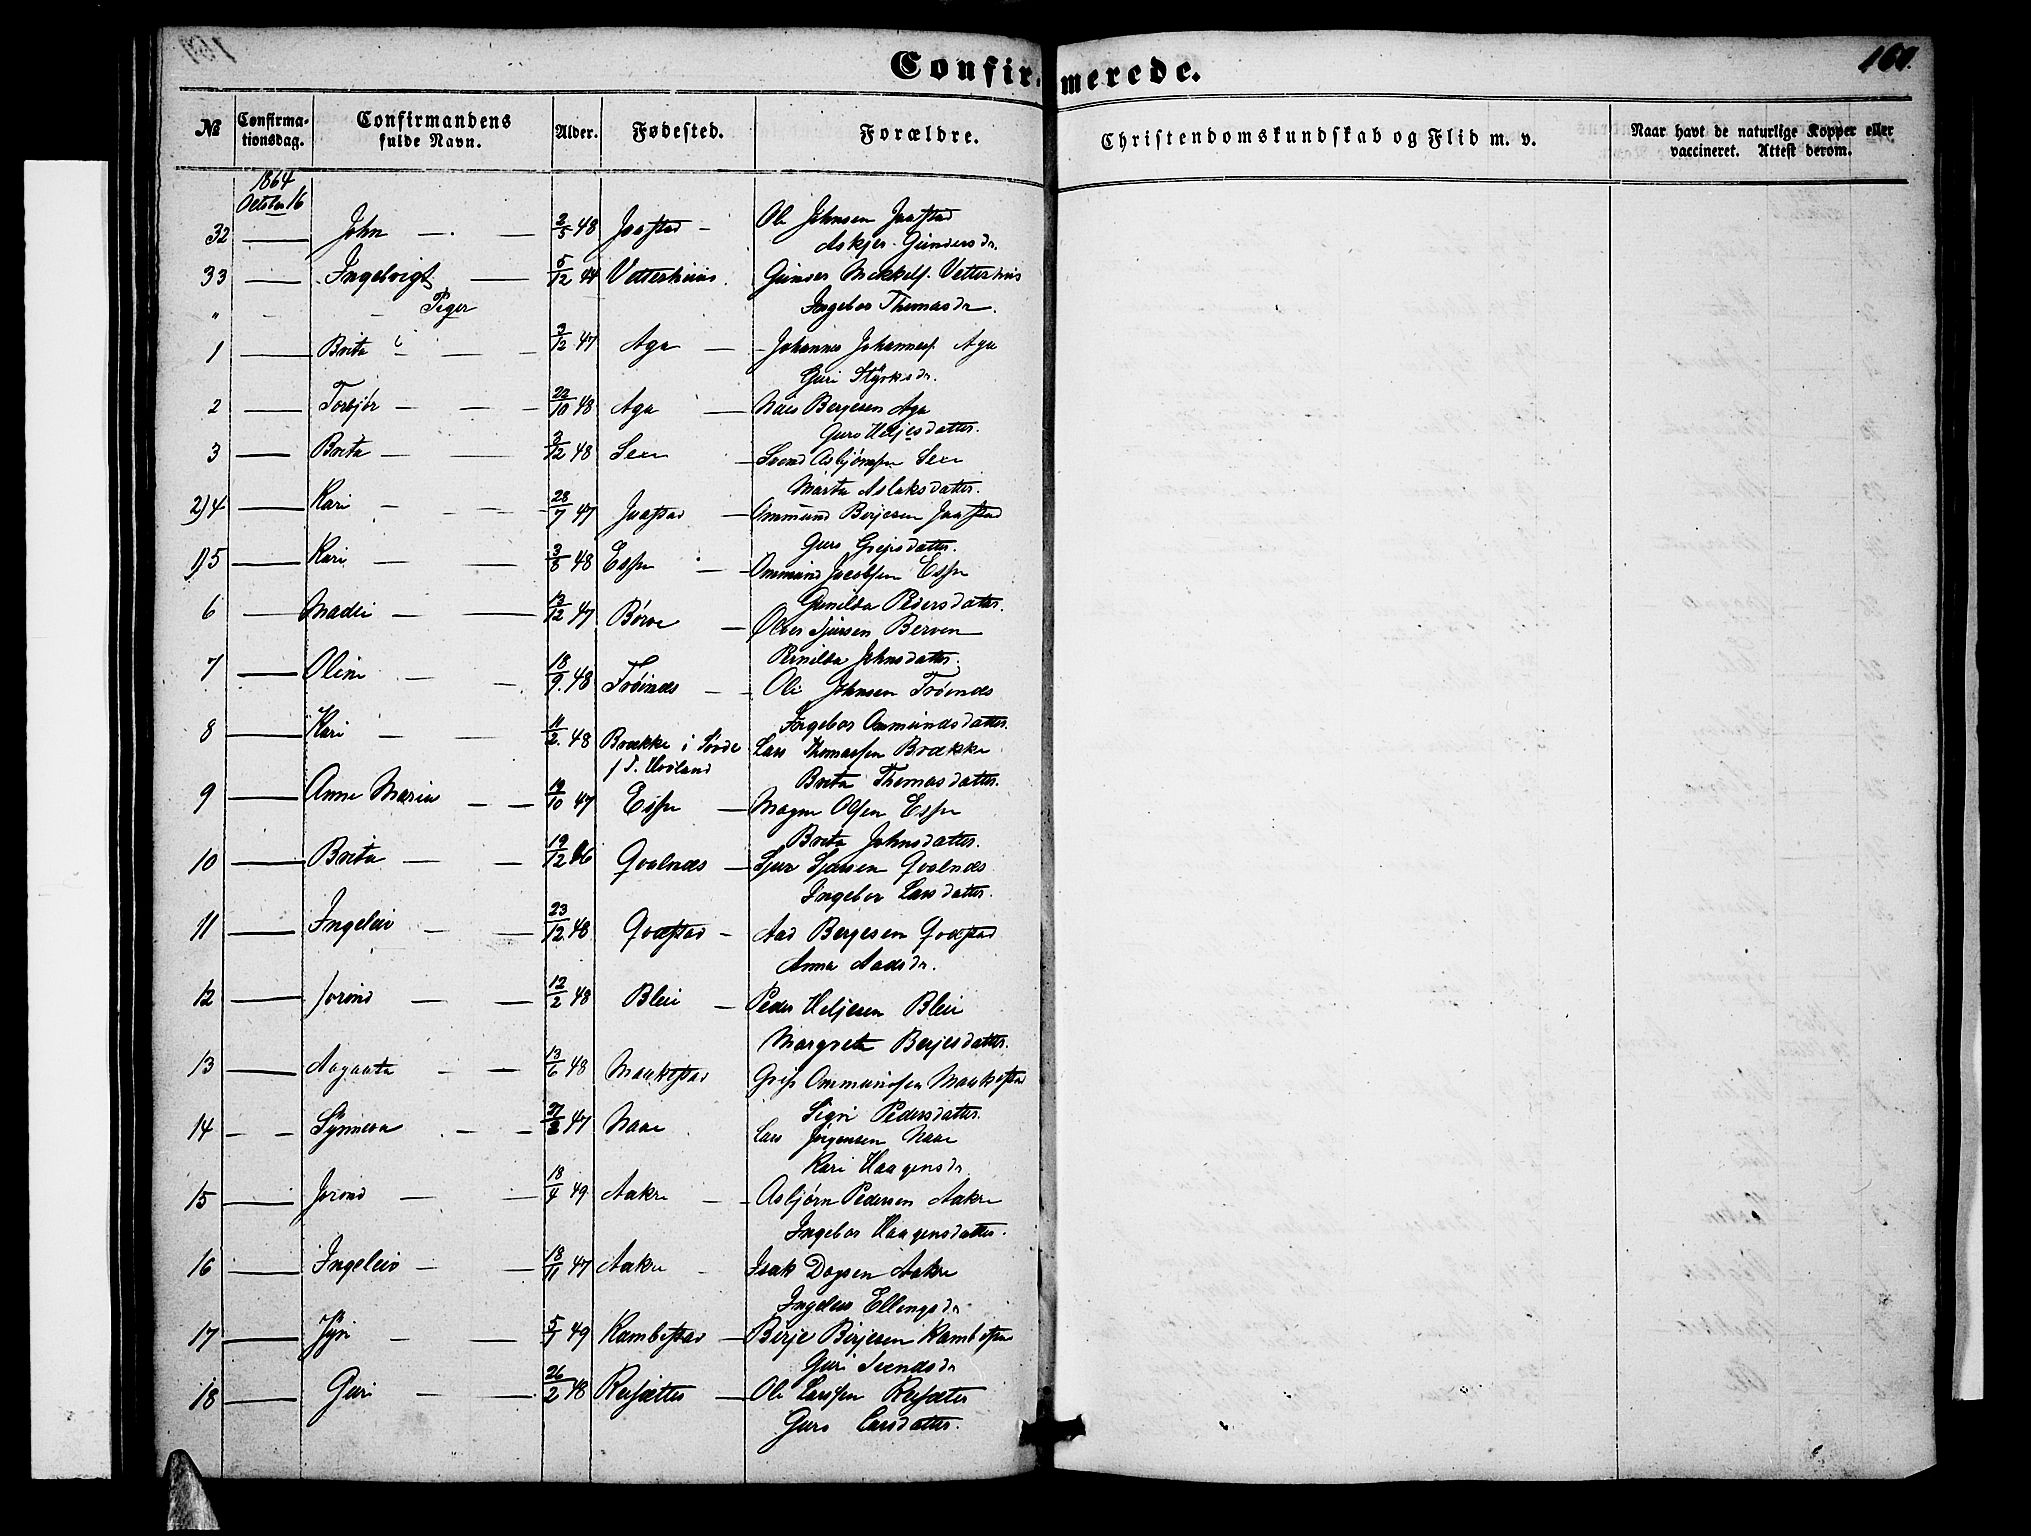 Confirmerede.
№ Confirmationsdag. Confirmandens fulde Navn. Alder. Fødested. Forældre. Christendomskundskab og Flid m. v. Naar havt de naturlige Kopper eller vaccineret. Attest derom.
1864
October 16
32 — John — 2/5 48 Jaastad — Ole Johnsen Jaastad
Askjer Gundersdr.
33 — Ingebrigt — 5/12 44 Vetterhuus Gunder Mikkels. Vetterhus
Piger Ingebor Thomasdr.
1 — Brita — 3/12 47 Aga — Johannes Johanness. Aga
Guri Styrksdr.
2 — Torbjør — 22/10 48 Aga — Niels Bergesen Aga
Guro Heljesdatter.
3 — Brita — 3/12 48 Sexe — Svend Asbjørnsen Sexe
Marta Aslaksdatter.
2) 4 — Kari — 28/7 47 Jaastad — Ommund Berjesen Jaastad
Guro Gripsdatter.
1) 5 — Kari — 3/8 48 Espe — Ommund Jacobsen Espe
Gunilda Pedersdatter.
6 — Madli — 13/12 47 Børve — Olver Sjursen Berven
Pernilda Johnsdatter.
7 — Oline — 18/9 48 Trøinæs — Ole Johnsen Trøinæs
Ingebor Ommundsdatter.
8 — Kari — 11/2 48 Brække i Lars Thomassen Brække
Brita Thomasdatter.
9 — Anne Maria — 14/10 47 Espe — Magne Olsen Espe
Brita Johnsdatter.
10 — Brita — 19/12 46 Qvalnæs — Sjur Sjursen Qvalnæs
Ingebor Larsdatter.
11 — Ingeleiv — 23/12 48 Qvæstad — Aad Bergesen Qvæstad
Anna Aadsdr.
12 — Jorond — 12/2 48 Bleie — Peder Heljesen Bleie
Margreta Berjesdatter.
13 — Aagaata — 13/6 48 Maakestad Grip Ommundsen Maakestad
Sigri Pedersdatter.
14 — Synneva — 47 Naae Lars Jørgensen Naae
Kari Haagensdr
15 — Jorond — 18/4 49 Aakre — Asbjørn Pedersen Aakre
Ingebor Haagensdatter.
16 — Ingeleiv — 18/11 47 Aakre — Isak Dagsen Aakre
Ingeleiv Ellingsdr
17 — Jyri — 5/1 49 Kambestad — Berje Berjesen Kambestad
Guri Svendsdr
18 — Guri — 26/2 48 Reisæter — Ole Larssen Reisæter
Guro Larsdatter.